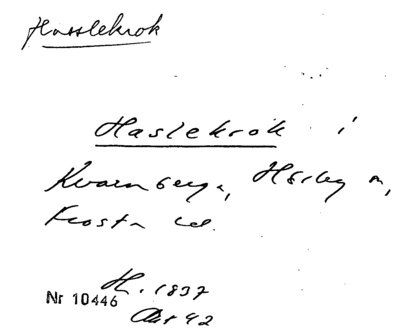 Hasslekrok
Haslekrok i
Kvarnberga, Hörby sn,
Frosta hd.
H. 1837
Nr 10446
Art 42